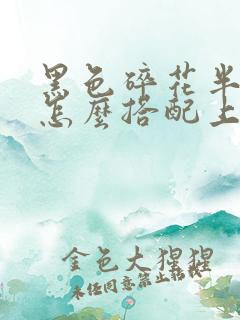 黑色碎花半
怎麼搭配上
金色大猩猩
未经同意禁止转载